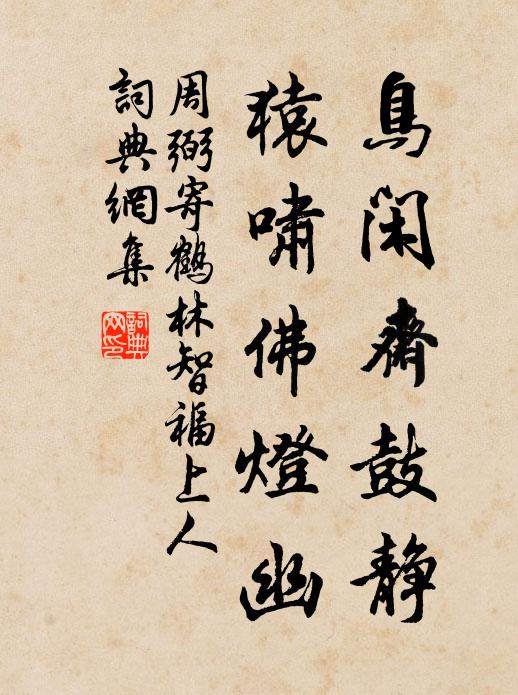 鳥閑齋鼓静
猿嘯佛燈幽
周弼寄鶴林智福上人
詞典網集
詞典网印